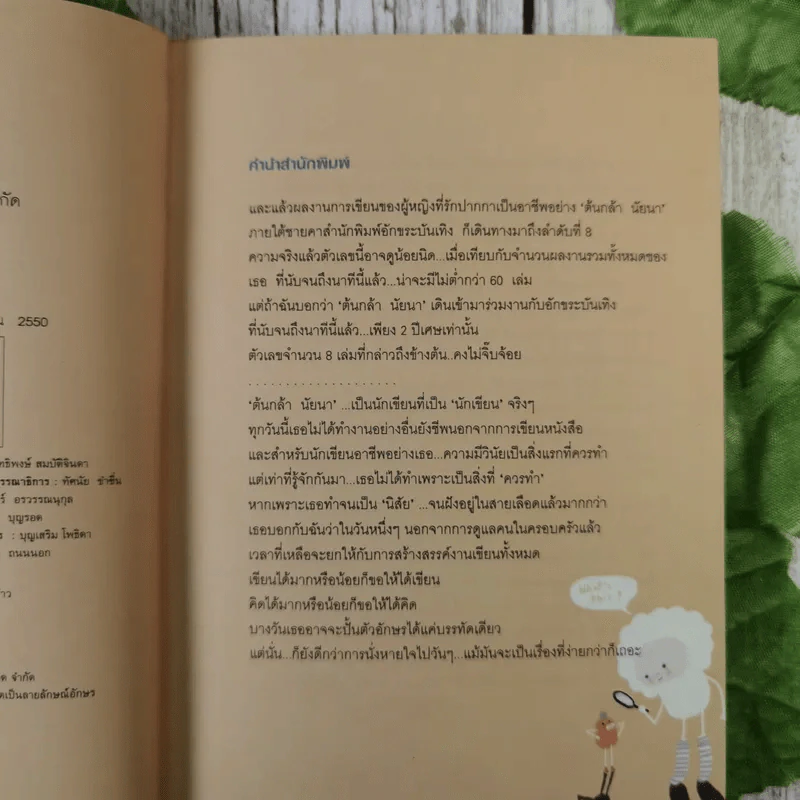 กัด
2550
ทธิพงษ์ สมบัติจินดา
รรณาธิการ : ทัศนัย ขำชื่น
ร์ อรวรรณนุกูล
บุญรอด
ร : บุญเสริม โพธิดา
ถนนนอก
าว
ด จำกัด
ตเป็นลายลักษณ์อักษร
คำนำสำนักพิมพ์
และแล้วผลงานการเขียนของผู้หญิงที่รักปากกาเป็นอาชีพอย่าง ‘ต้นกล้า นัยนา’
ภายใต้ชายคาสำนักพิมพ์อักขระบันเทิง ก็เดินทางมาถึงลำดับที่ 8
ความจริงแล้วตัวเลขนี้อาจดูน้อยนิด...เมื่อเทียบกับจำนวนผลงานรวมทั้งหมดของ
เธอ ที่นับจนถึงนาทีนี้แล้ว...น่าจะมีไม่ต่ำกว่า 60 เล่ม
แต่ถ้าฉันบอกว่า ‘ต้นกล้า นัยนา’ เดินเข้ามาร่วมงานกับอักขระบันเทิง
ที่นับจนถึงนาทีนี้แล้ว...เพียง 2 ปีเศษเท่านั้น
ตัวเลขจำนวน 8 เล่มที่กล่าวถึงข้างต้น..คงไม่จิ๊บจ้อย
. . . . . . . . . . . . . . . . . . . .
‘ต้นกล้า นัยนา’ ...เป็นนักเขียนที่เป็น ‘นักเขียน’ จริงๆ
ทุกวันนี้เธอไม่ได้ทำงานอย่างอื่นยังชีพนอกจากการเขียนหนังสือ
และสำหรับนักเขียนอาชีพอย่างเธอ...ความมีวินัยเป็นสิ่งแรกที่ควรทำ
แต่เท่าที่รู้จักกันมา...เธอไม่ได้ทำเพราะเป็นสิ่งที่ ‘ควรทำ’
หากเพราะเธอทำจนเป็น ‘นิสัย’ ...จนฝังอยู่ในสายเลือดแล้วมากกว่า
เธอบอกกับฉันว่าในวันหนึ่งๆ นอกจากการดูแลคนในครอบครัวแล้ว
เวลาที่เหลือจะยกให้กับการสร้างสรรค์งานเขียนทั้งหมด
เขียนได้มากหรือน้อยก็ขอให้ได้เขียน
คิดได้มากหรือน้อยก็ขอให้ได้คิด
บางวันเธออาจจะปั้นตัวอักษรได้แค่บรรทัดเดียว
แต่นั่น...ก็ยังดีกว่าการนั่งหายใจไปวันๆ...แม้มันจะเป็นเรื่องที่ง่ายกว่าก็เถอะ